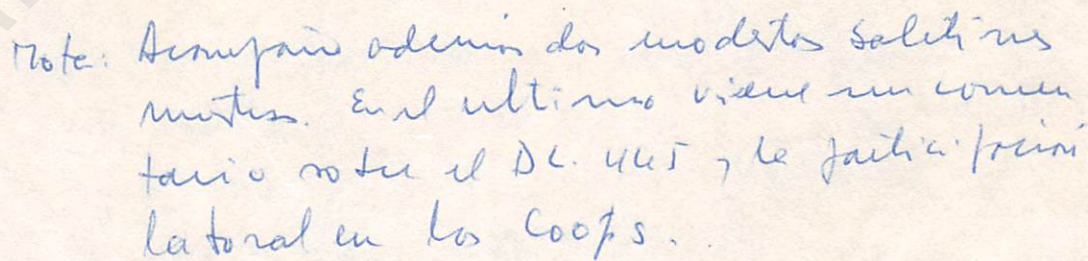 Nota: Acompaño además dos modestos boletines
nuestros. En el ultimo viene un comen
tario sobre el DL. 445 y la participación
laboral en las Coops.